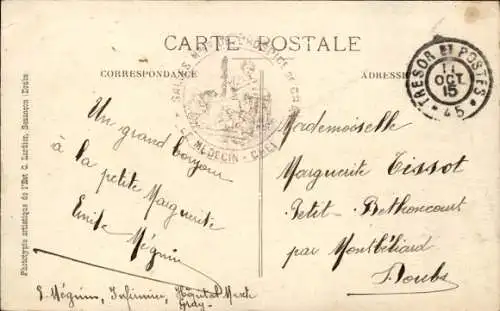 CARTE POSTALE
CORRESPONDANCE
ADRESSE
TRESOR ET POSTES
11
OCT
15
* 45 *
LE MEDECIN - CHEF
Un grand bonjour
à la petite Marguerite
Emile
Méguin
E. Méguin, Infirmier, Hôpital Mixte
Gray
Mademoiselle
Marguerite Tissot
Petit-Bethoncourt
par Montbéliard
Doubs
Phototypie artistique de l'Est C. Lardier, Besançon (Doubs)